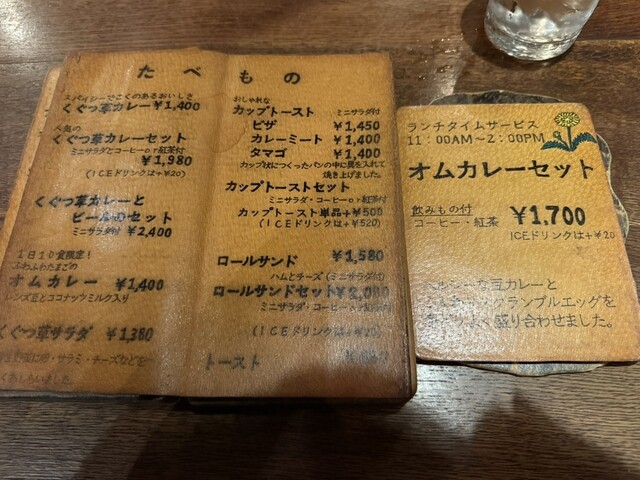 たべもの
スパイシーでこくのあるおいしさ
くぐつ草カレー ¥1,400
人気の
くぐつ草カレーセット
ミニサラダとコーヒーor紅茶付
¥1,980
(ICEドリンクは+¥20)
くぐつ草カレーと
ビールのセット
ミニサラダ付 ¥2,400
1日10食限定!
ふわふわたまごの
オムカレー ¥1,400
レンズ豆とココナッツミルク入り
くぐつ草サラダ ¥1,380
・サラミ・チーズなどを
おしゃれな
カップトースト ミニサラダ付
ピザ ¥1,450
カレーミート ¥1,400
タマゴ ¥1,400
カップ状につくったパンの中に具を入れて
焼き上げました。
カップトーストセット
ミニサラダ・コーヒーor紅茶付
カップトースト単品+¥500
(ICEドリンクは+¥520)
ロールサンド ¥1,580
ハムとチーズ(ミニサラダ付)
ロールサンドセット ¥2,080
ミニサラダ・コーヒーor紅茶付
(ICEドリンクは+¥20)
トースト
ランチタイムサービス
11:00AM〜2:00PM
オムカレーセット
飲みもの付
コーヒー・紅茶 ¥1,700
ICEドリンクは+¥20
ヘルシーな豆カレーと
スクランブルエッグを
盛り合わせました。